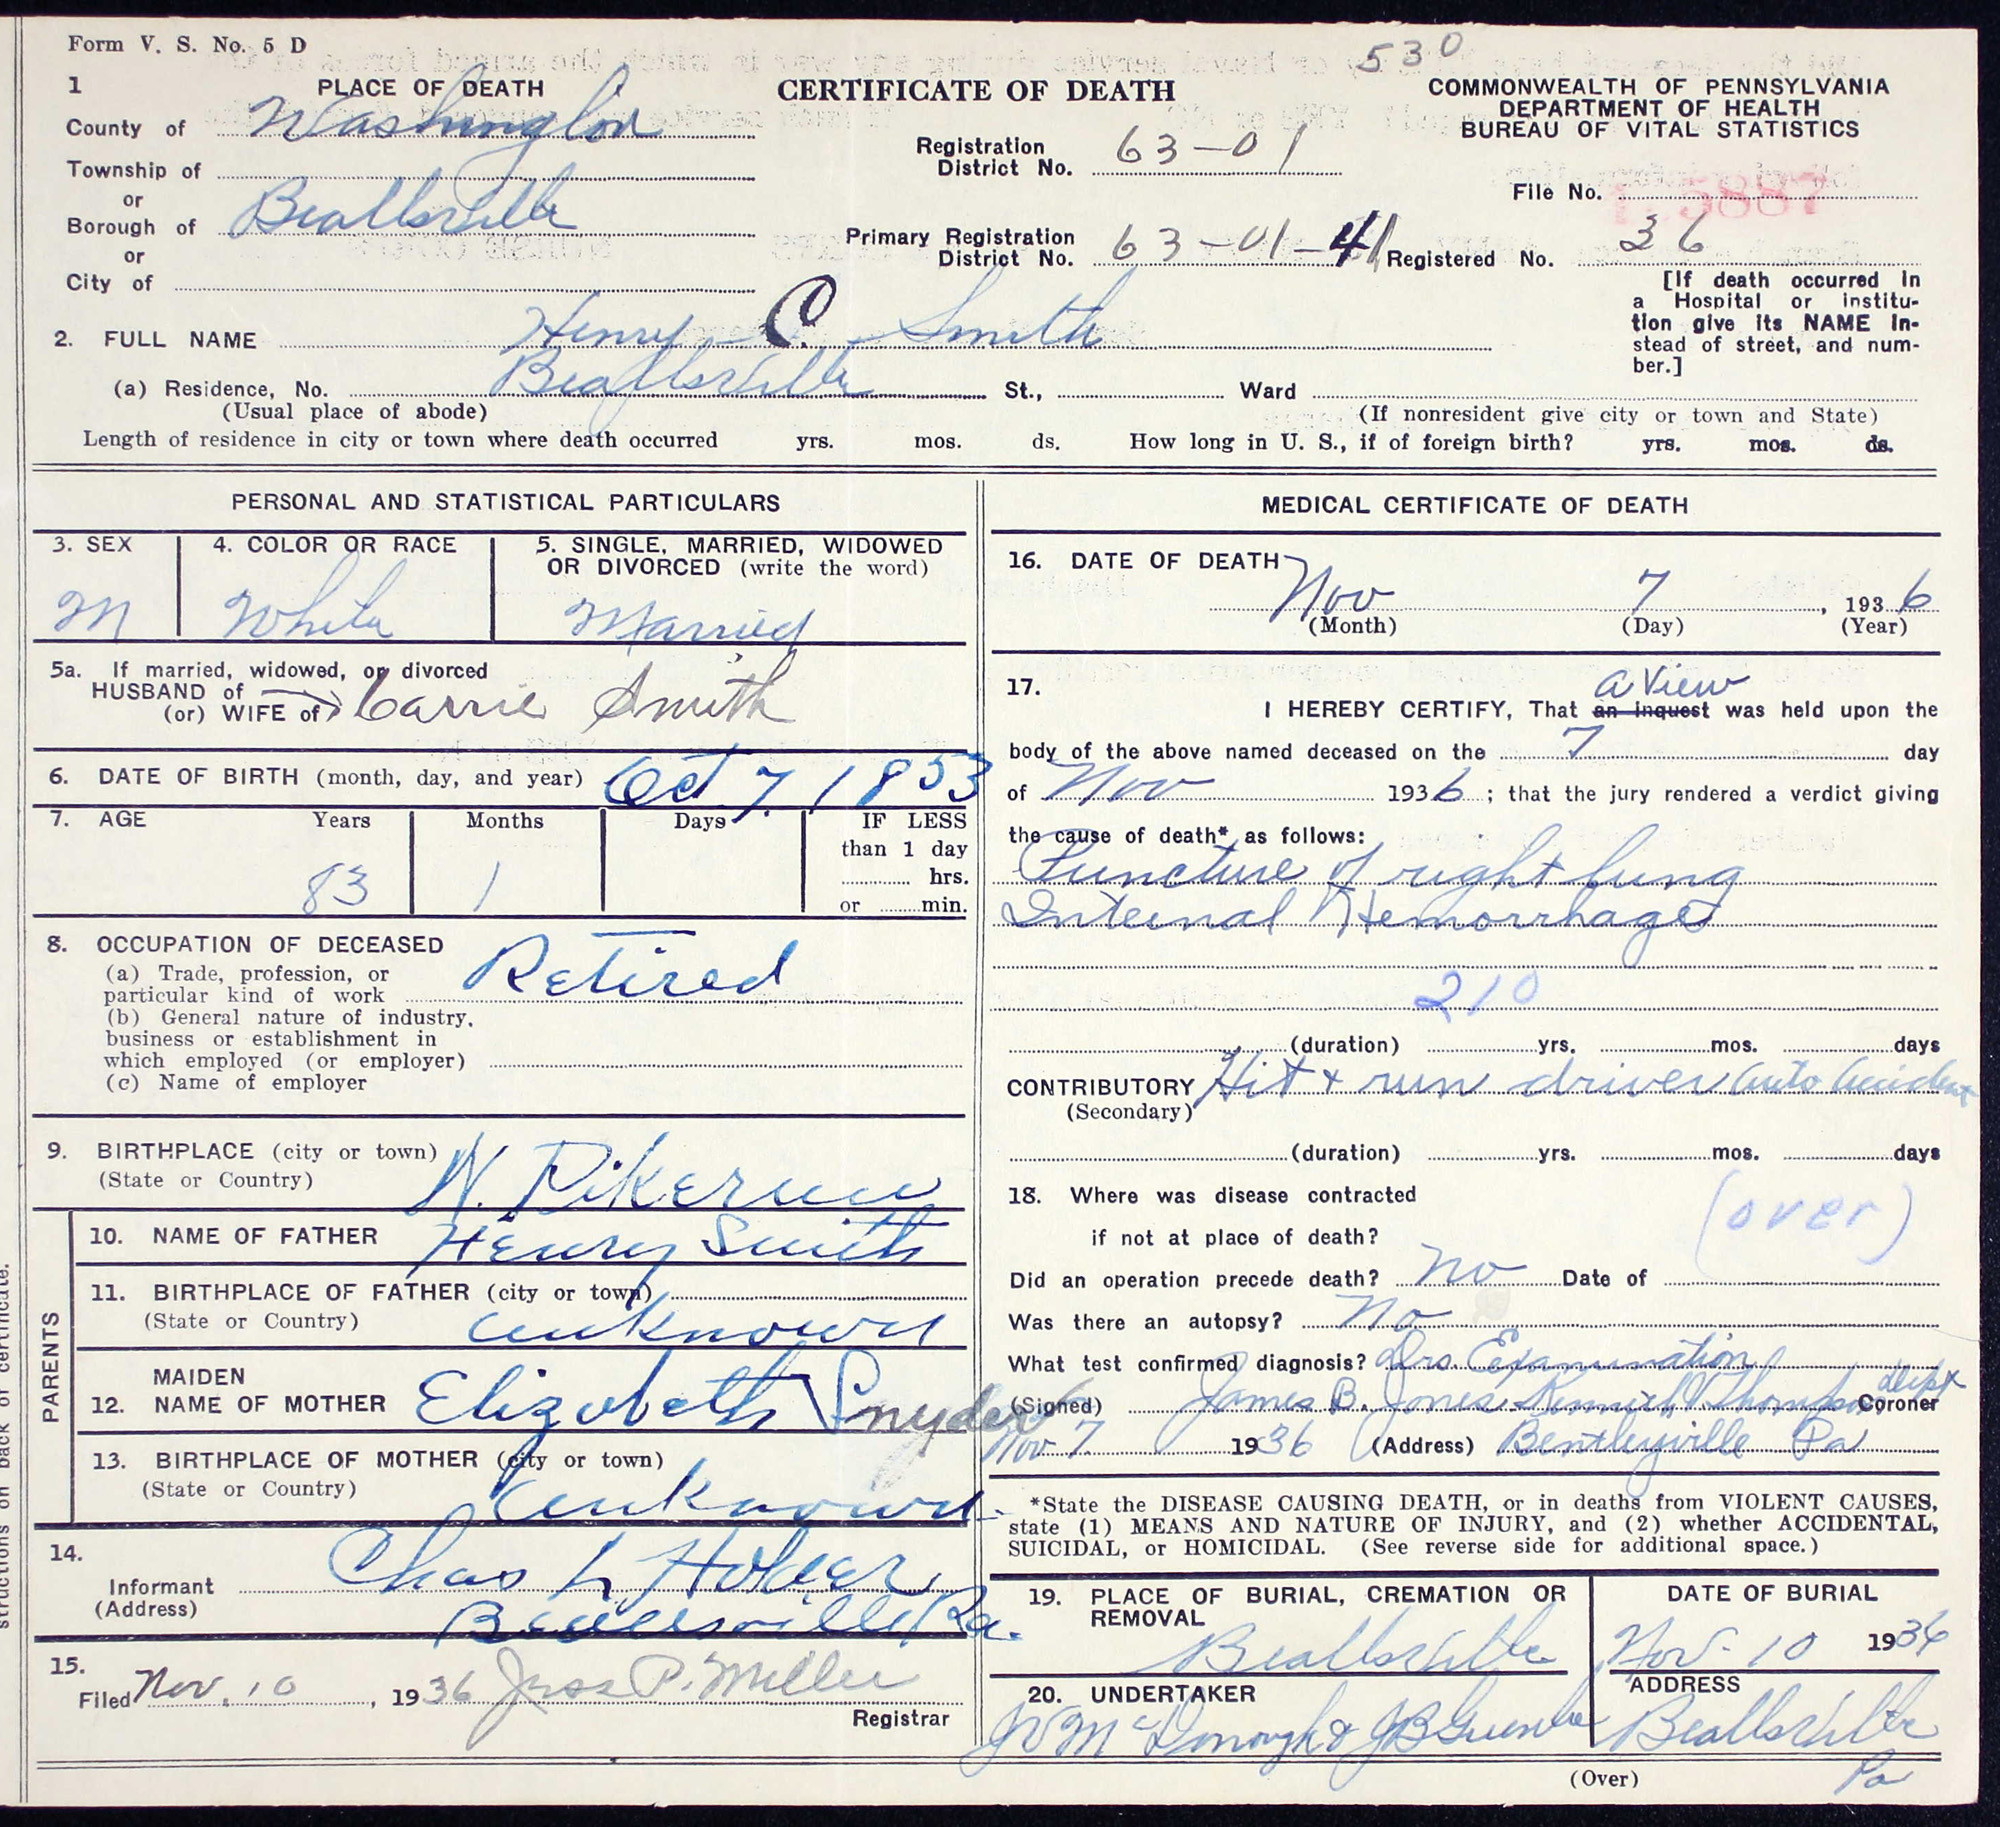 Form V. S. No. 5 D
530
1 PLACE OF DEATH
CERTIFICATE OF DEATH
COMMONWEALTH OF PENNSYLVANIA
DEPARTMENT OF HEALTH
BUREAU OF VITAL STATISTICS
County of Washington
Township of
or
Borough of Beallsville
or
City of
Registration
District No. 63-01
File No.
Primary Registration
District No. 63-01-41
Registered No. 36
[If death occurred in
a Hospital or institu-
tion give its NAME in-
stead of street, and num-
ber.]
2. FULL NAME Henry C. Smith
(a) Residence, No. Beallsville St., Ward
(Usual place of abode)
(If nonresident give city or town and State)
Length of residence in city or town where death occurred yrs. mos. ds. How long in U. S., if of foreign birth? yrs. mos. ds.
PERSONAL AND STATISTICAL PARTICULARS
3. SEX
M
4. COLOR OR RACE
White
5. SINGLE, MARRIED, WIDOWED
OR DIVORCED (write the word)
Married
5a. If married, widowed, or divorced
HUSBAND of
(or) WIFE of Carrie Smith
6. DATE OF BIRTH (month, day, and year) Oct 7, 1853
7. AGE Years Months Days IF LESS
than 1 day
hrs.
or min.
83 1
8. OCCUPATION OF DECEASED
(a) Trade, profession, or
particular kind of work Retired
(b) General nature of industry,
business or establishment in
which employed (or employer)
(c) Name of employer
9. BIRTHPLACE (city or town)
(State or Country) W. Pike
PARENTS
10. NAME OF FATHER Henry Smith
11. BIRTHPLACE OF FATHER (city or town)
(State or Country) Unknown
12. MAIDEN
NAME OF MOTHER Elizabeth Snyder
13. BIRTHPLACE OF MOTHER (city or town)
(State or Country) Unknown
14.
Informant Chas L
(Address) Beallsville Pa.
15.
Filed Nov. 10, 1936 Jess P. Miller
Registrar
MEDICAL CERTIFICATE OF DEATH
16. DATE OF DEATH
Nov 7, 1936
(Month) (Day) (Year)
17. a view
I HEREBY CERTIFY, That an inquest was held upon the
body of the above named deceased on the 7 day
of Nov 1936; that the jury rendered a verdict giving
the cause of death* as follows:
Puncture of right lung
Internal Hemorrhages
210
(duration) yrs. mos. days
CONTRIBUTORY Hit & run driver Auto Accident
(Secondary)
(duration) yrs. mos. days
18. Where was disease contracted
if not at place of death?
(over)
Did an operation precede death? No Date of
Was there an autopsy? No
What test confirmed diagnosis? Drs Examination
(Signed) James B. Jones Thompson dept Coroner
Nov 7 1936 (Address) Bentleyville Pa
*State the DISEASE CAUSING DEATH, or in deaths from VIOLENT CAUSES,
state (1) MEANS AND NATURE OF INJURY, and (2) whether ACCIDENTAL,
SUICIDAL, or HOMICIDAL. (See reverse side for additional space.)
19. PLACE OF BURIAL, CREMATION OR
REMOVAL
Beallsville
DATE OF BURIAL
Nov. 10 1936
20. UNDERTAKER
McDonough & J B
ADDRESS
Beallsville
Pa
(Over)
structions on back of certificate.